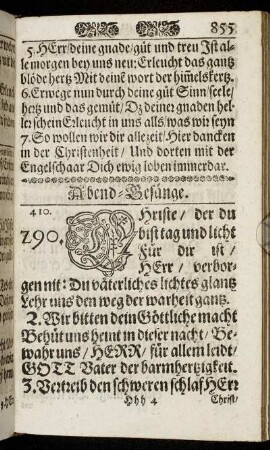 855
5. HErr deine gnade/ güt und treu Jst al-
le morgen bey uns neu: Erleucht das gantz
blöde hertz Mit deinē wort der him̃elskertz.
6. Erwege nun durch deine güt Sinn/ seele/
hertz und das gemüt/ Dz deiner gnaden hel-
ler schein Erleucht in uns alls/ was wir seyn
7. So wollen wir dir allezeit/ Hier dancken
in der Christenheit/ Und dorten mit der
Engelschaar Dich ewig loben immerdar.
Abend-Gesänge.
410.
290. CHriste/ der du
bist tag und licht
Für dir ist/
HErr/ verbor-
gen nit: Du väterliches lichtes glantz
Lehr uns den weg der warheit gantz.
2. Wir bitten dein Göttliche macht
Behüt uns heint in dieser nacht/ Be-
wahr uns/ HERR/ für allem leidt/
GOTT Vater der barmhertzigkeit.
3. Vertreib den schweren schlaf HErr
Hhh 4
Christ/